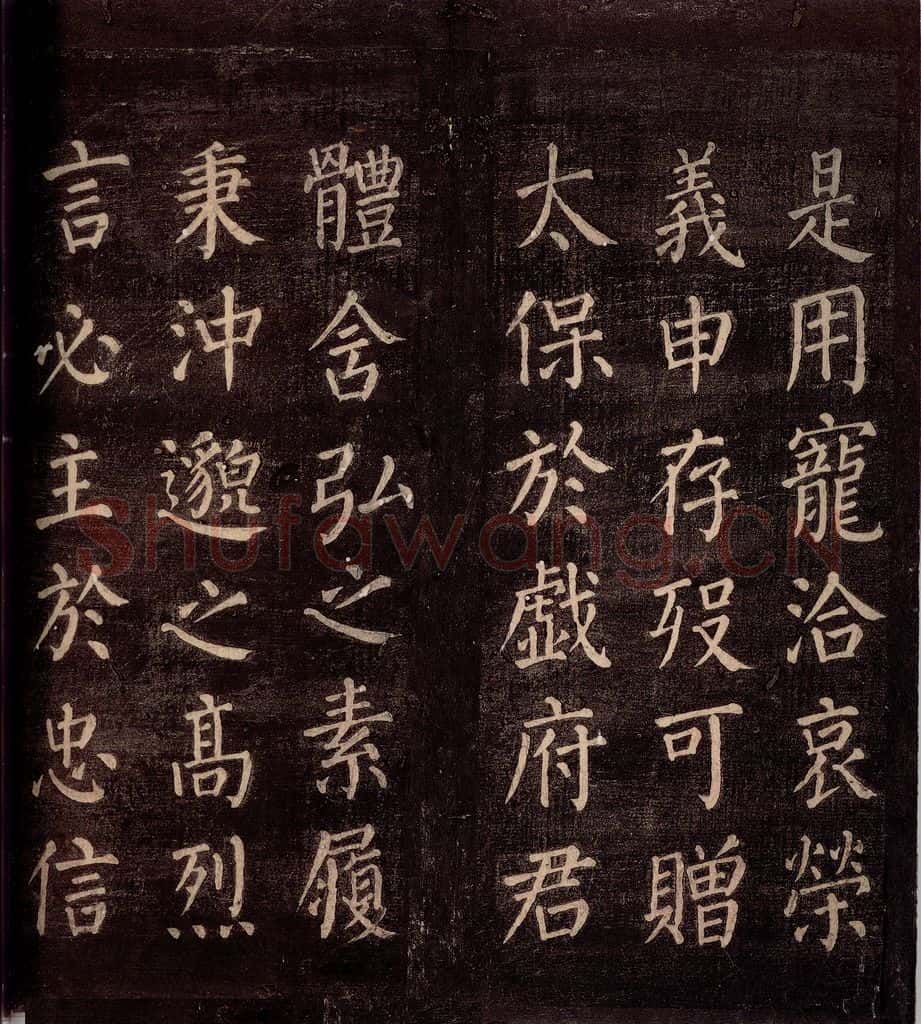 是用寵洽哀榮
義申存歿可贈
太保於戯府君
體含弘之素履
秉沖邈之高烈
言必主於忠信
Shufawang.CN